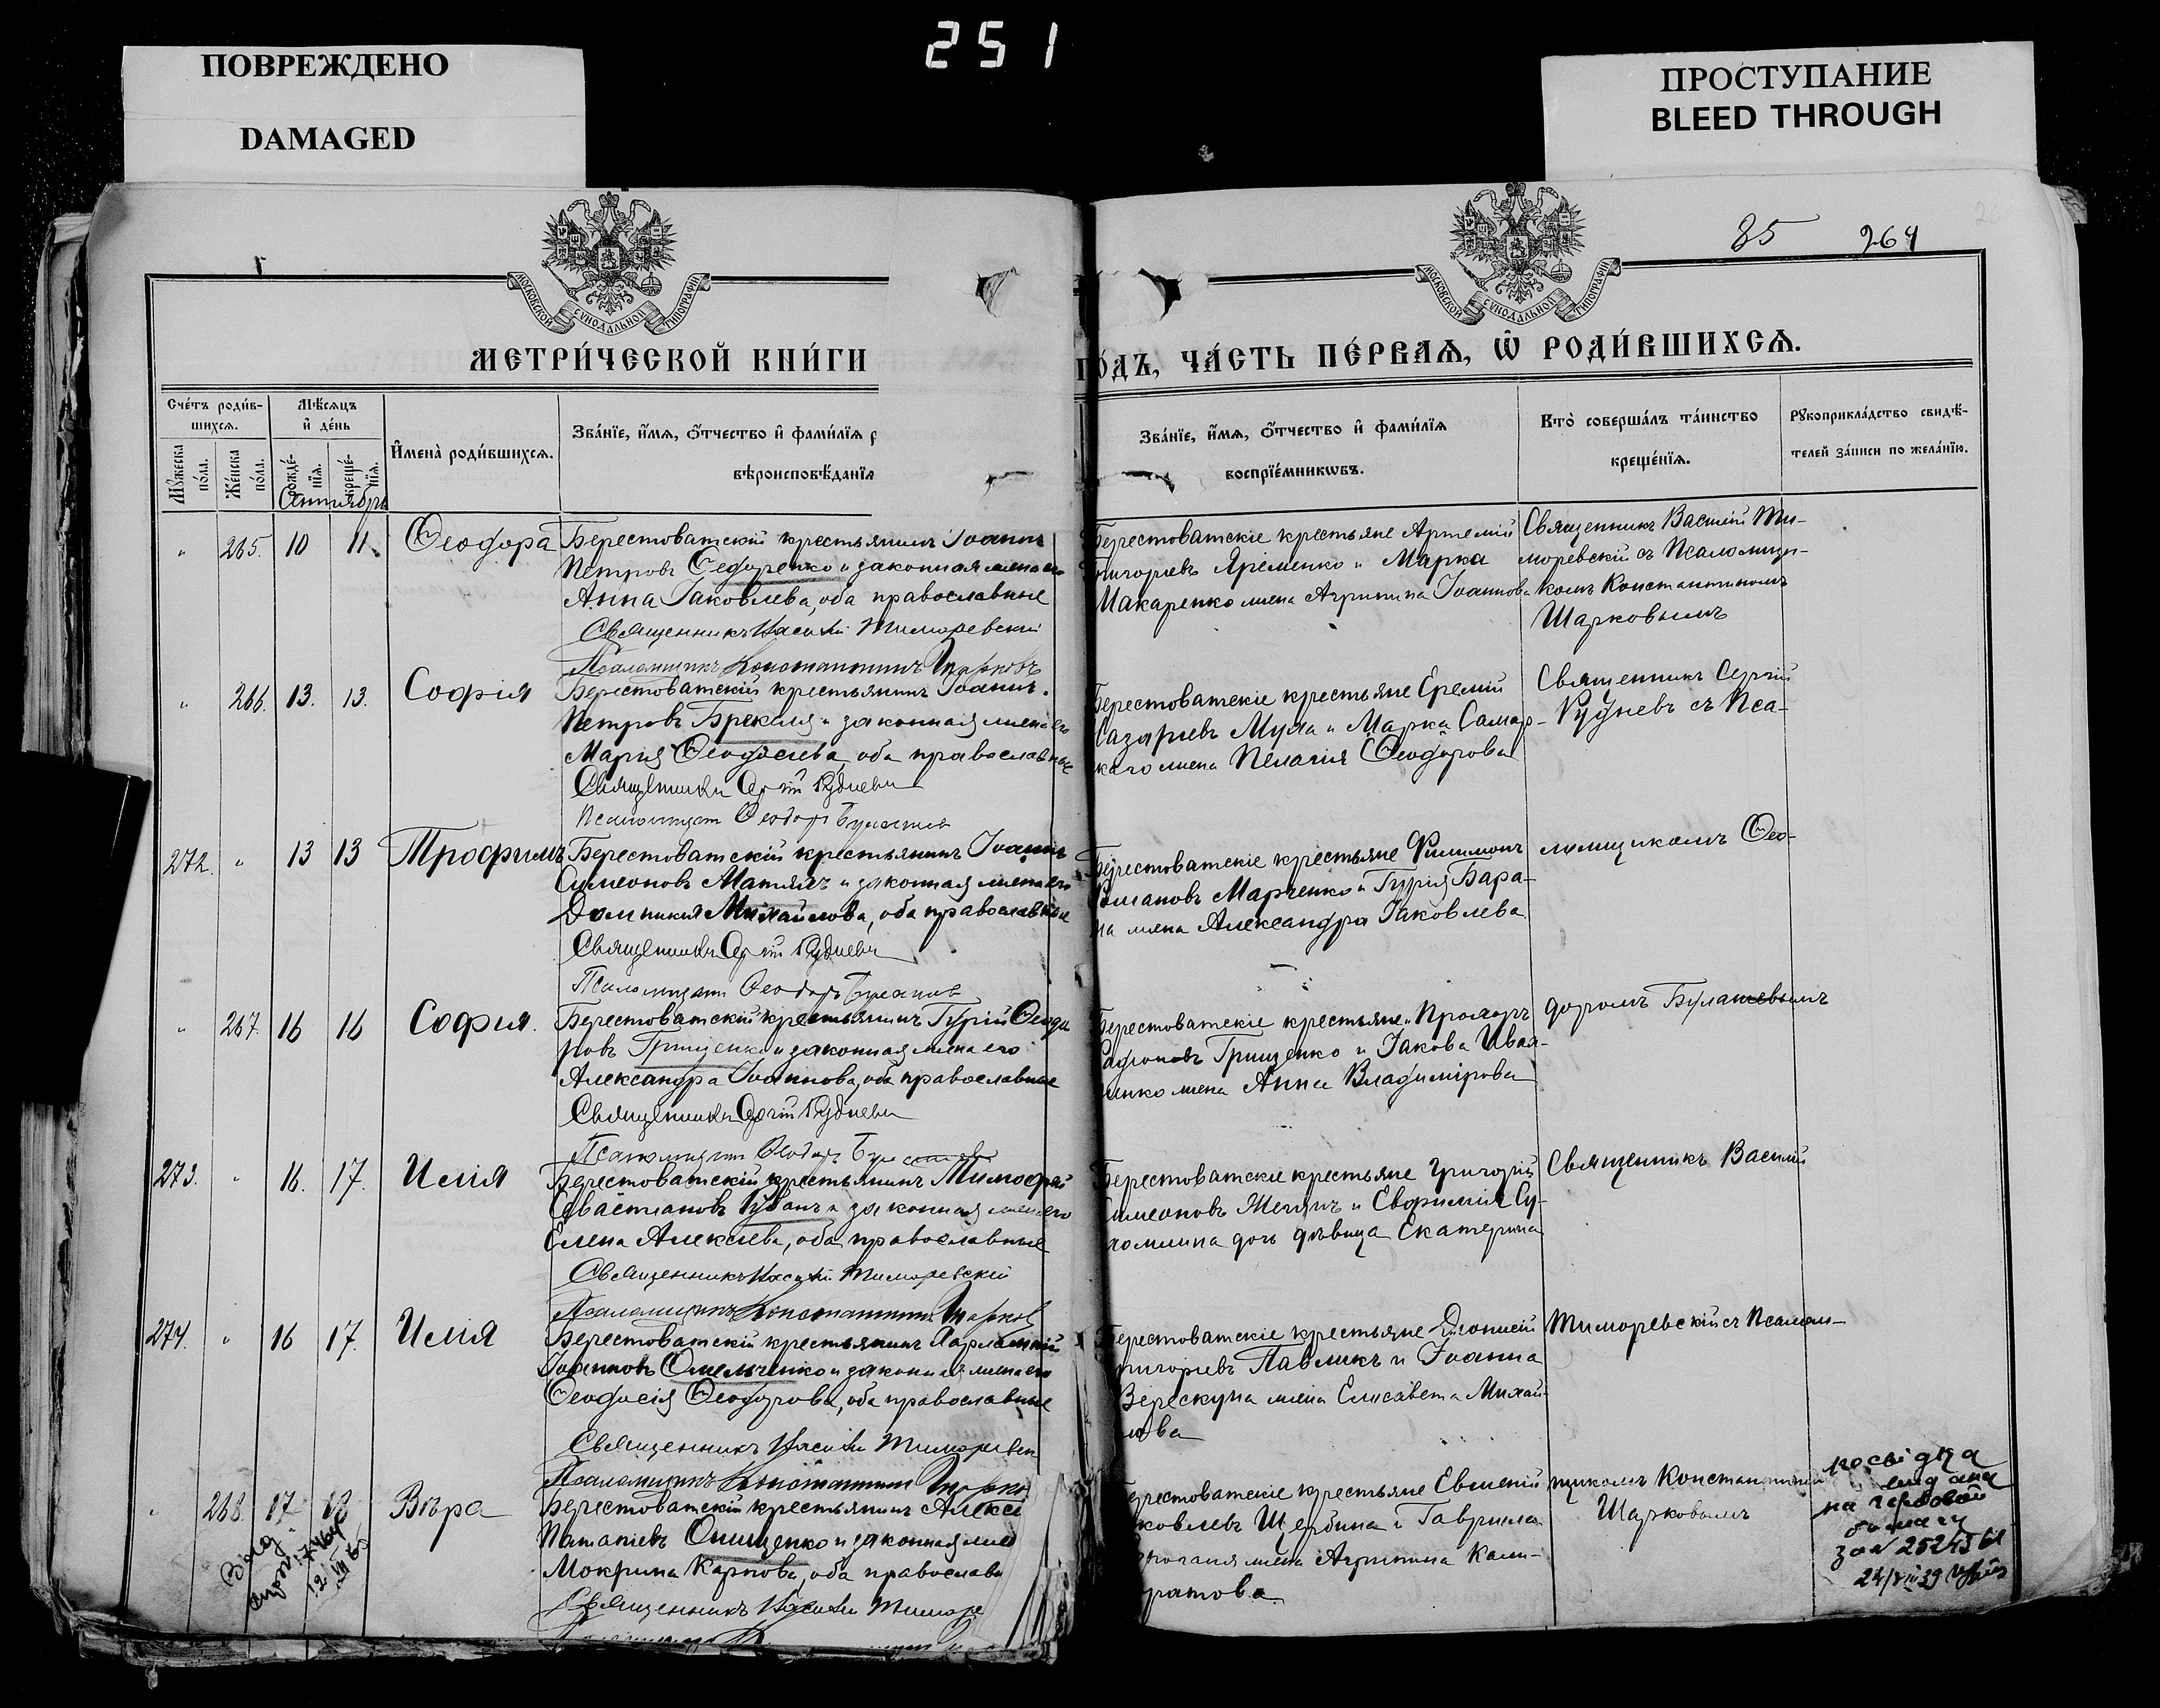 251
ПОВРЕЖДЕНО
DAMAGED
ПРОСТУПАНИЕ
BLEED THROUGH
МОСКОВСКОЙ СѴНОДАЛЬНОЙ ТИПОГРАФІИ
МОСКОВСКОЙ СѴНОДАЛЬНОЙ ТИПОГРАФІИ
85 264
МЕТРИ́ЧЕСКОЙ КНИ́ГИ
ГО́ДЪ, ЧА́СТЬ ПЕ́РВАѦ, Ѡ҃ РОДИ́ВШИХСѦ.
Счéтъ роди́в-
шихсѧ.
Мꙋ́жеска по́ла.
Же́нска по́ла.
Мѣ́сѧцъ
и҆ де́нь
рожде́-
нїѧ.
креще́-
нїѧ.
И҆мена̀ роди́вшихсѧ.
Зва́нїе, и҆́мѧ, ѻ҆́тчество и҆ фами́лїѧ р
вѣроисповѣ́данїѧ
Зва́нїе, и҆́мѧ, ѻ҆́тчество и҆ фами́лїѧ
воспрїе́мникѡвъ.
Кто̀ соверша́лъ та́инство
креще́нїѧ.
Рꙋкоприкла́дство свидѣ́-
телей за́писи по жела́нїю.
Сентябрь
" 265. 10 11. Ѳеодора
Берестоватскій крестьянинъ Іоаннъ
Петровъ Седоренко и законная жена его
Анна Іаковлева, оба православные
Священникъ Василій Тиморевскій
Псаломщикъ Константинъ Шарковъ
Берестоватскіе крестьяне Артемій
Григорьевъ Яременко и Марка
Макаренко жена Агрипина Іоаннова
Священникъ Василій Ти-
моревскій съ Псаломщи-
комъ Константиномъ
Шарковымъ
" 266. 13. 13. Софія
Берестоватскій крестьянинъ Іоаннъ
Петровъ Брекаля и законная жена его
Марія Ѳеодосіева, оба православные
Священникъ Сергій Рудневъ
Псаломщикъ Ѳеодоръ Булашевъ
Берестоватскіе крестьяне Еремій
Лазаревъ Муха и Марка Самар-
каго жена Пелагія Ѳеодорова
Священникъ Сергій
Рудневъ съ Пса-
272. " 13 13 Трофимъ
Берестоватскій крестьянинъ Іоаннъ
Симеоновъ Матяшъ и законная жена его
Домникія Михайлова, оба православные
Священникъ Сергій Рудневъ
Псаломщикъ Ѳеодоръ Булашевъ
Берестоватскіе крестьяне Филимонъ
Романовъ Марченко и Гурія Бара-
на жена Александра Іаковлева
ломщикомъ Ѳео-
" 267. 16 16 Софія.
Берестоватскій крестьянинъ Гурій Ѳеодо
ровъ Грищенко и законная жена его
Александра Іоаннова, оба православные
Священникъ Сергій Рудневъ
Псаломщикъ Ѳеодоръ Булашевъ
Берестоватскіе крестьяне Прохоръ
Сафоновъ Грищенко и Іакова Ива-
ненко жена Анна Владимірова
доромъ Булашевымъ
273. " 16. 17. Илія
Берестоватскій крестьянинъ Тимофей
Севастіановъ Губанъ и законная жена его
Елена Алексіева, оба православные
Священникъ Василій Тиморевскій
Псаломщикъ Константинъ Шарковъ
Берестоватскіе крестьяне Григорій
Симеоновъ и Евфимія Су-
хомлина дочь дѣвица Екатерина
Священникъ Василій
274. " 16 17. Илія
Берестоватскій крестьянинъ Харлампій
Іоанновъ Омельченко и законная жена его
Ѳеодосія Ѳеодорова, оба православные
Священникъ Василій Тиморевскій
Псаломщикъ Константинъ Шарков
Берестоватскіе крестьяне Діонисій
Григорьевъ Павликъ и Іоанна
Верескуна жена Елисавета Михай-
лова
Тиморевскій съ Псалом-
" 268. 17. 18 Вѣра
Берестоватскій крестьянинъ Алексі
Потапіевъ Онищенко и законная жен
Мокрина Карпова, оба православн
Священникъ Василій Тиморе
Берестоватскіе крестьяне Евгеній
ковлевъ Щербина и Гавріила
жена Агрипина Кали-
стратова
щикомъ Константиномъ
Шарковымъ
посвідка
видана
на гербовой
бумагу
за N 252458
24/VII 39
12 VII 65